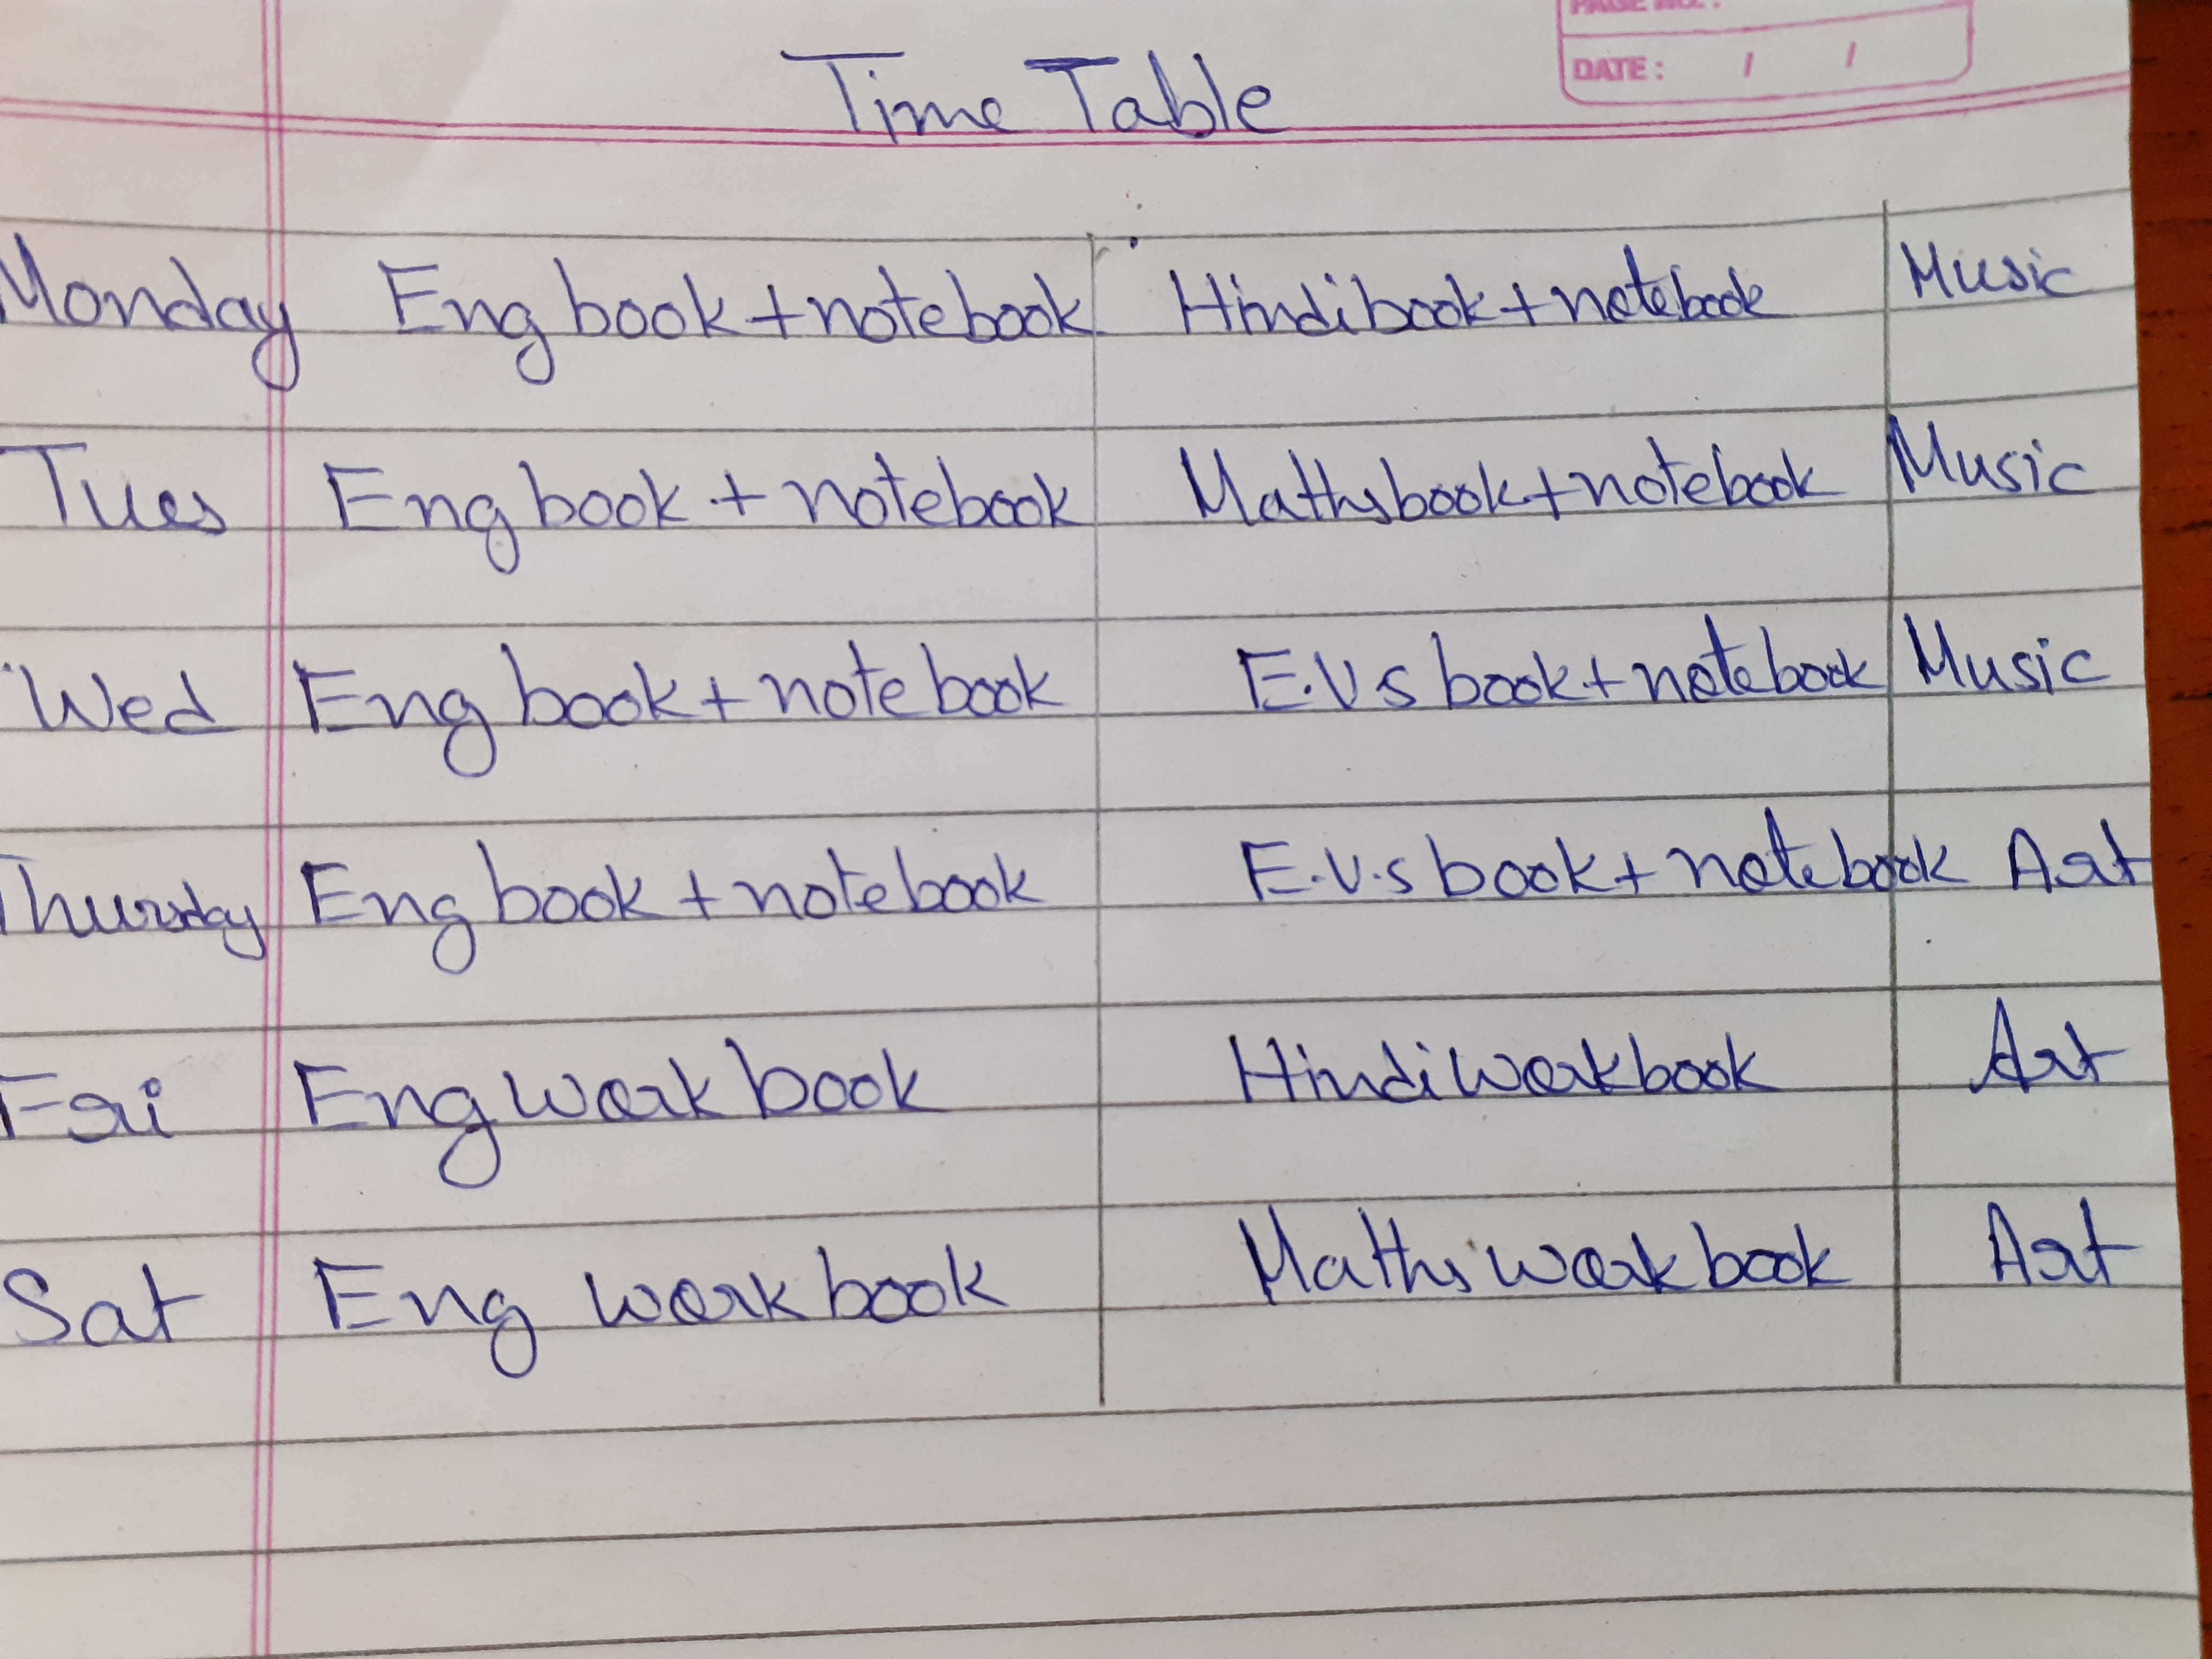 PAGE NO.:
DATE: / /
Time Table
Monday Eng book + notebook Hindi book + notebook Music
Tues Eng book + notebook Maths book + notebook Music
Wed Eng book + notebook E.V.s book + notebook Music
Thursday Eng book + notebook E.V.s book + notebook Art
Fri Eng work book Hindi Work book Art
Sat Eng work book Maths work book Art